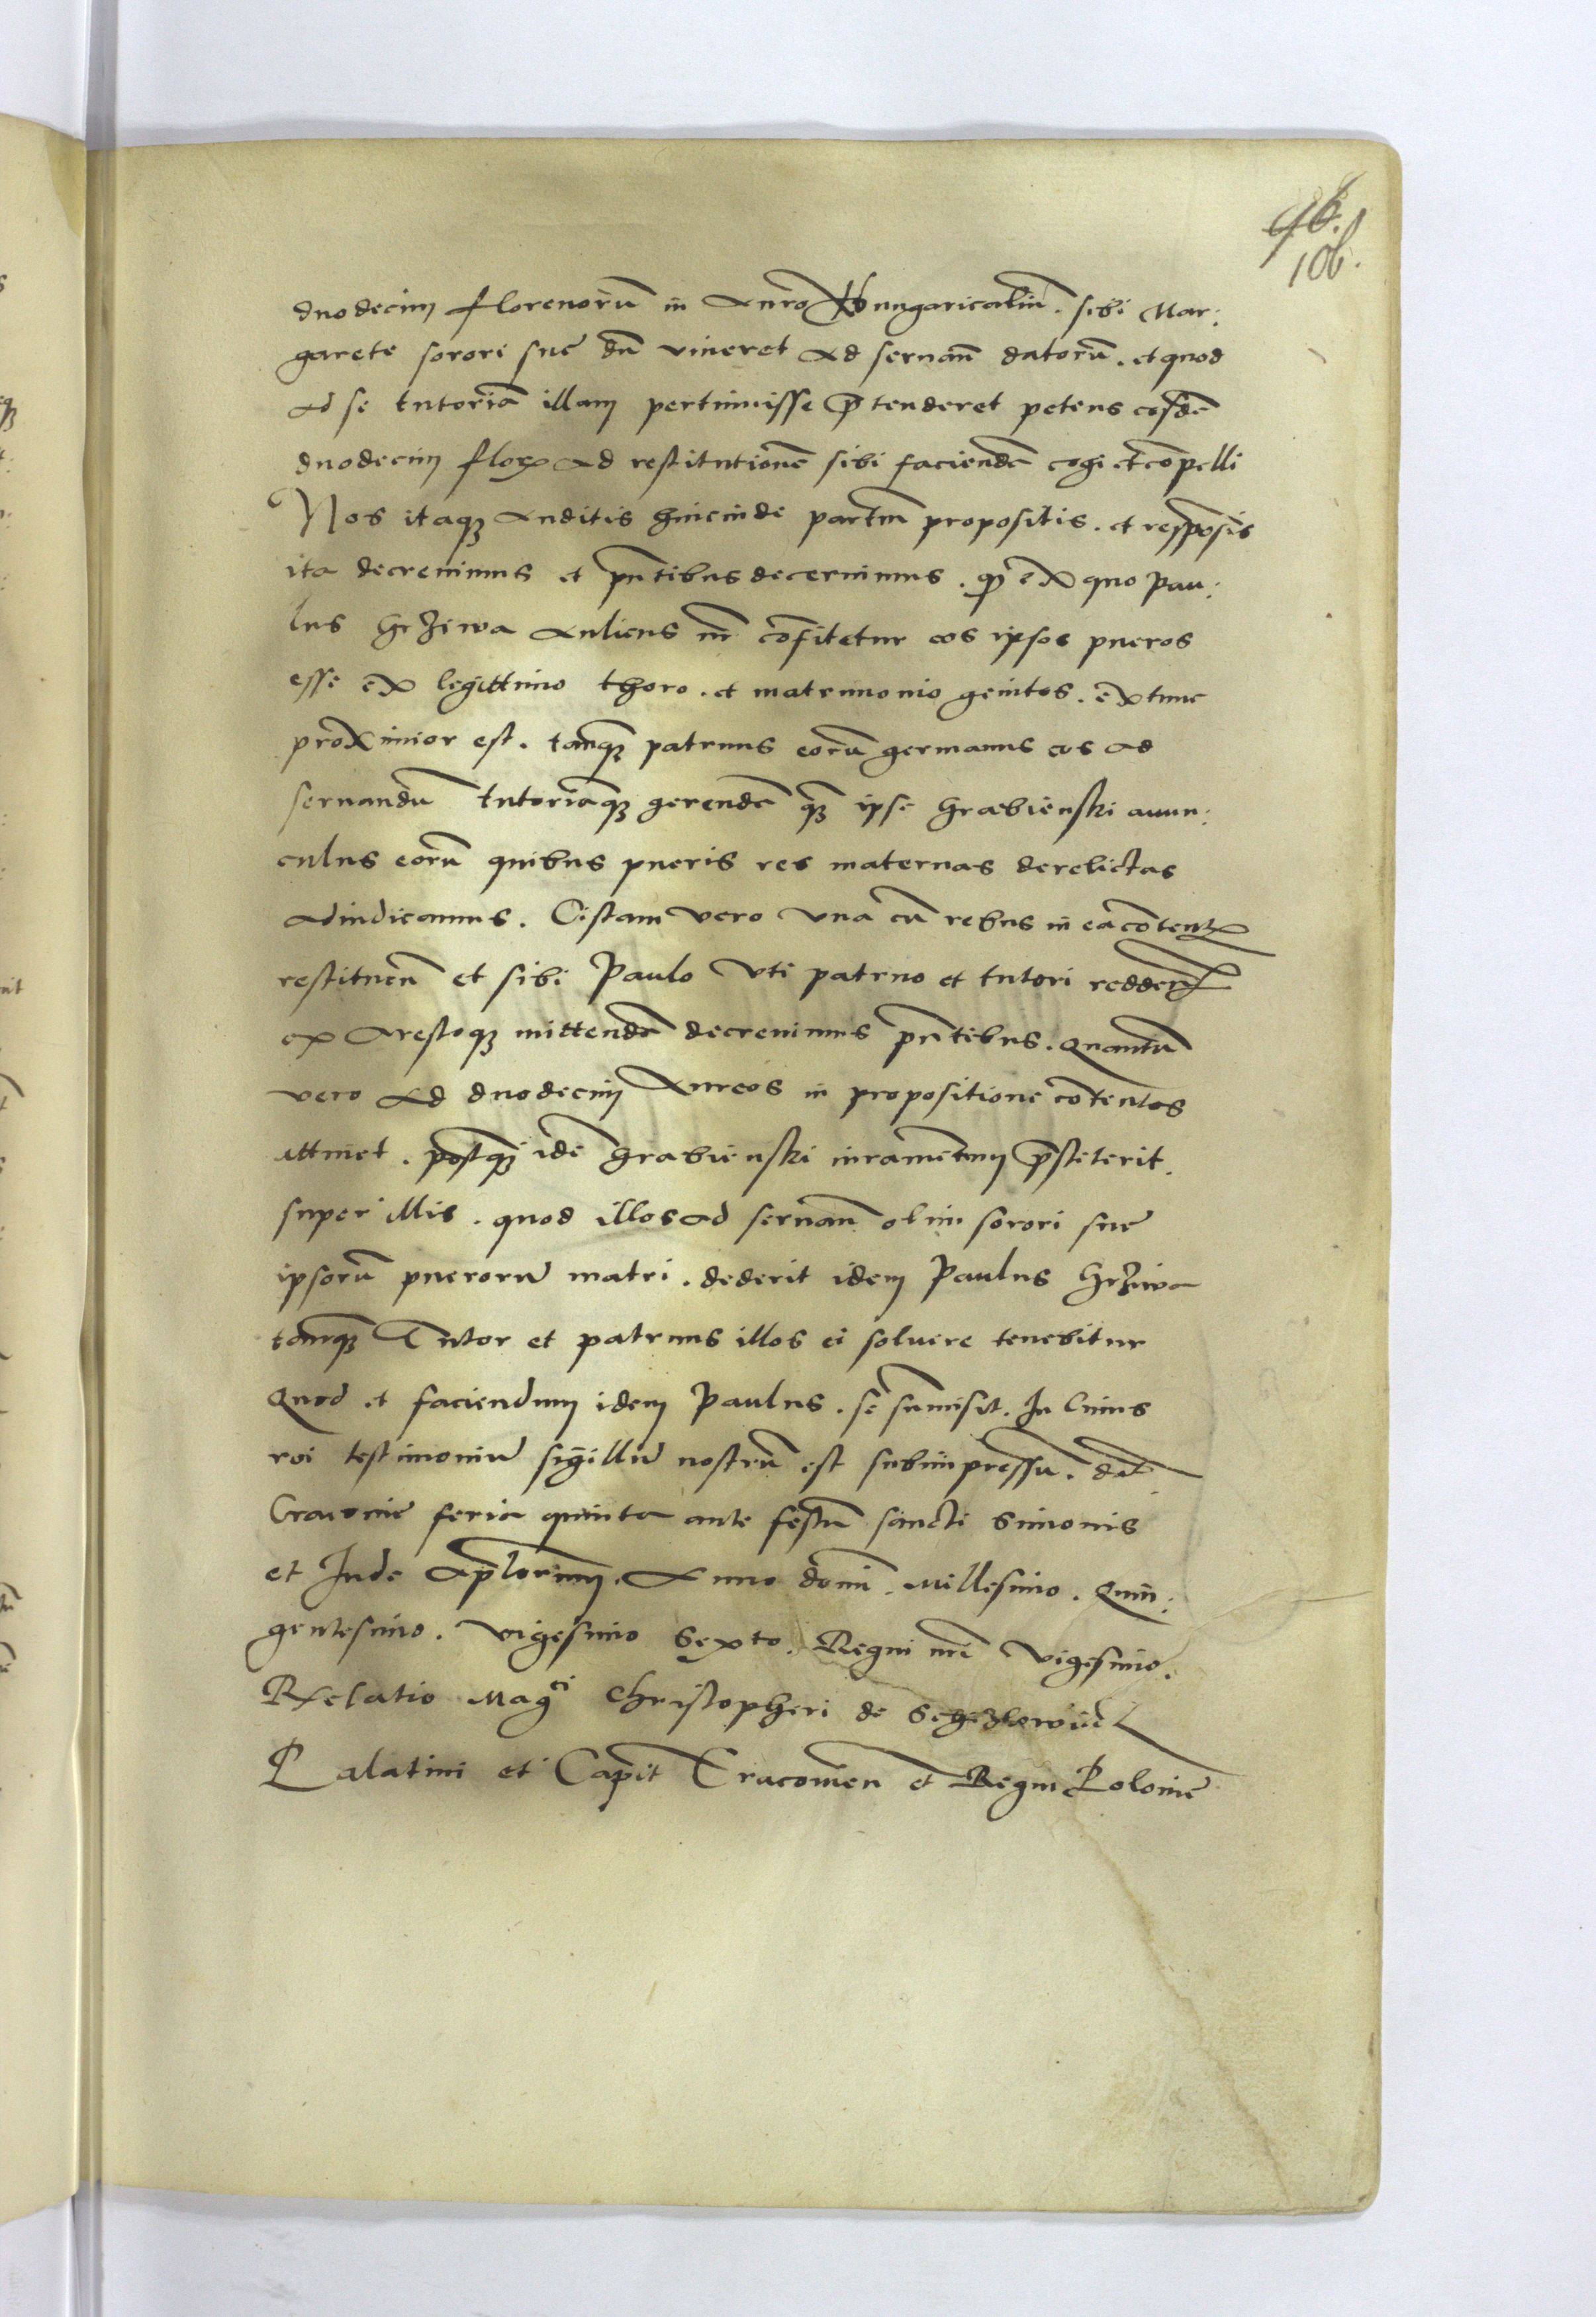 96.
106.
duodecim florenorū in Auro Hungaricaliū. sibi Mar:
garete sorori sue dū viueret ad seruanđ datorū. et quod
ad se tutoriā illam pertinuisse p̄tenderet petens eosdē
duodecim floꝝ ad restitutionē sibi faciendā cogi et cōpelli
Nos itaqꝫ auditis hincinde partiū propositis. et respōsis
ita decreuimus et pn̄tibus decernimus. ꝙ ex quo Pau:
lus hrziwa Aulicus nr̄ cōfitetur eos ipsos pueros
esse ex legittimo thoro. et matrimonio genitos. extunc
proximior est. tanqꝫ patruus eorū germanus eos ad
seruandū tutoriāqꝫ gerendā qꝫ ipse Grabienski auun:
culus eorū quibus pueris res maternas derelictas
adiudicamus. Cistam vero vna cū rebus in ea cōtentꝭ
restituenđ et sibi Paulo vti patruo et tutori reddenđ
ex Arestoqꝫ mittendā decreuimus pn̄tibus. Quantū
vero ad duodecim Aureos in propositione cōtentos
attinet. postqꝫ idē Grabienski iuramentum p̄stiterit.
super illis. quod illos ad seruanđ olim sorori sue
ipsorū puerorū matri. dederit idem Paulus hrziwa
tanqꝫ Tutor et patruus illos ei soluere tenebitur
Quod et faciendum idem Paulus. se sūmisit. In Cuius
rei testimoniū sigillū nostrū est subimpressū. dat̄
Cracouie feria quinta ante festū sancti Simonis
et Iude Ap̄lorum. Anno domī. Millesimo. Quin:
gentesimo. vigesimo Sexto. Regni nr̄i vigesimo.
Relatio Mag^ci Christopheri de Schidlowiecz
Palatini et Capit̄ Cracouień et Regni Polonie